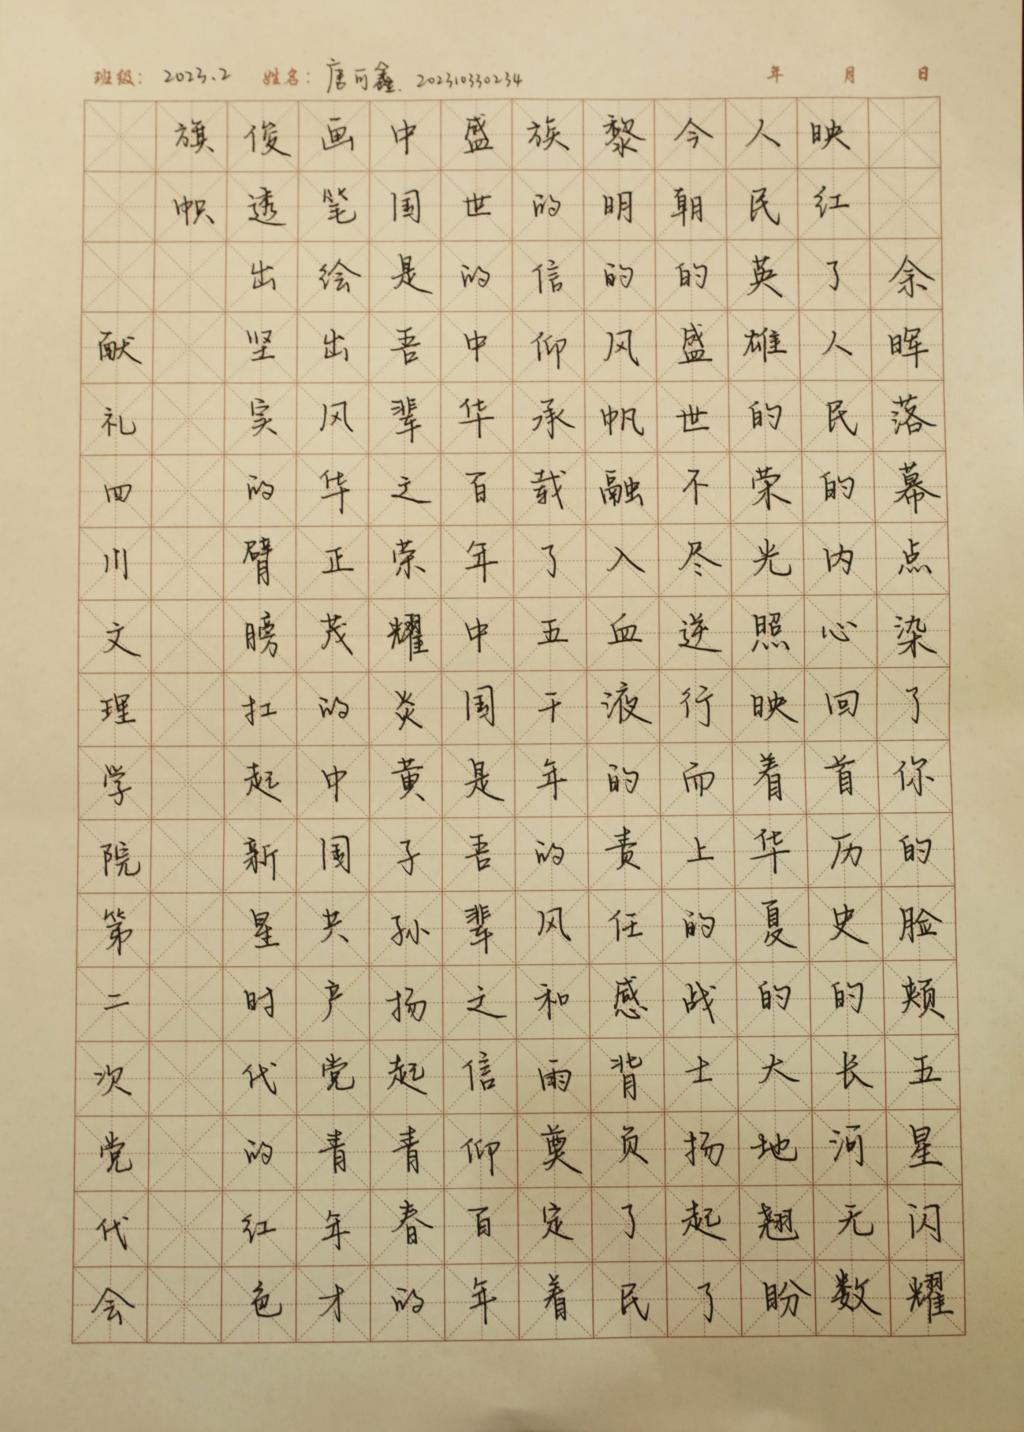 班级：2023.2 姓名：唐可鑫. 202310330234 年 月 日
余晖落幕点染了你的脸颊五星闪耀
映红了人民的内心回首历史的长河无数
人民英雄的荣光照映着华夏的大地翘盼
今朝的盛世不尽逆行而上的战士扬起了
黎明的风帆融入血液的责任感背负了民
族的信仰承载了五千年的风和雨奠定着
盛世的中华百年中国是吾辈之信仰百年
中国是吾辈之荣耀炎黄子孙扬起青春的
画笔绘出风华正茂的中国共产党青年才
俊透出坚实的臂膀扛起新星时代的红色
旗帜
献礼四川文理学院第二次党代会